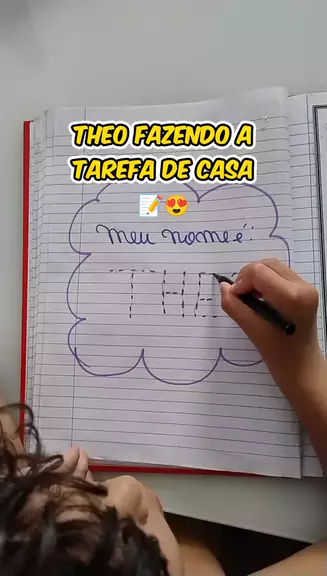 THEO FAZENDO A
TAREFA DE CASA
📝😍
meu nome é:
THE